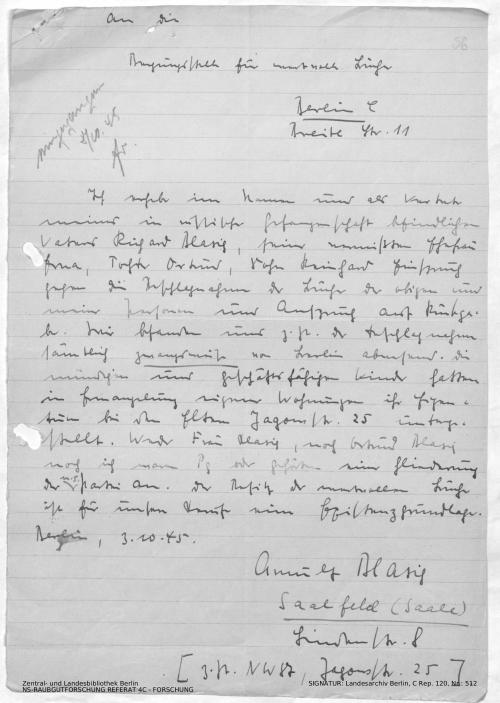 An die
Bergungsstelle für wertvolle Bücher
Berlin C
Breite Str. 11
eingegangen
58
Ich erhebe im Namen und als Vertreter
meines in russischer Gefangenschaft befindlichen
Vaters Richard Blasig, seiner vermissten Ehefrau
Erna, Tochter Ortrud, Sohn Reinhard Einspruch
gegen die Beschlagnahme der Bücher der obigen und
meiner Personen und Anspruch auf Rückga-
be. Wir befanden uns z. Zt. der Beschlagnahme
sämtlich zwangsweise von Berlin abwesend. Die
mündigen und geschäftsfähigen Kinder hatten
in Ermangelung eigener Wohnungen ihr Eigen-
tum bei den Eltern Jagowstr. 25 unterge-
stellt. Weder Frau Blasig, noch Ortrud Blasig
noch ich waren Pg oder gehörten einer Gliederung
der N.S. Partei an. Der Besitz der wertvollen Bücher
ist für unsern Beruf eine Existenzgrundlage.
Berlin, 3.10.45.
Arnulf Blasig
Saalfeld (Saale)
Lindenstr. 8
[z. Zt. NW 87, Jagowstr. 25]
Zentral- und Landesbibliothek Berlin
NS-RAUBGUTFORSCHUNG REFERAT 4C - FORSCHUNG
SIGNATUR: Landesarchiv Berlin, C Rep. 120, Nr. 512